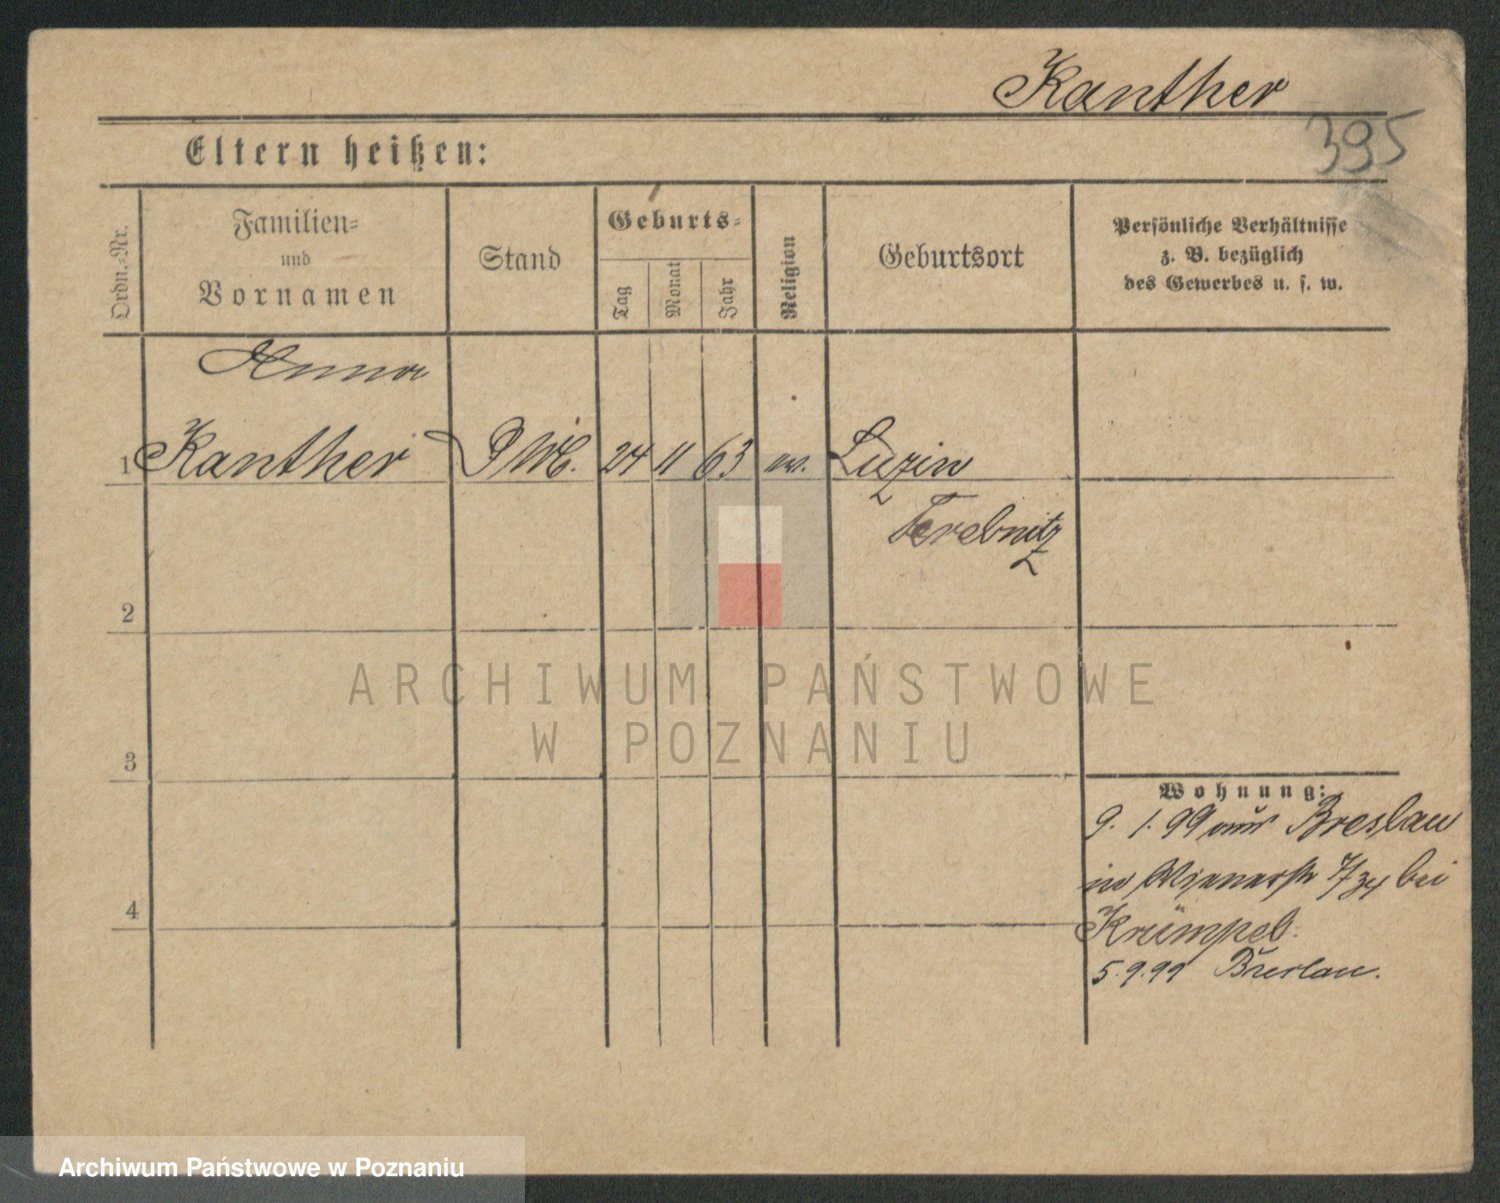 Kanther
395
Eltern heißen:
Ordn.-Nr.
Familien-
und
Vornamen
Stand
Geburts-
Tag
Monat
Jahr
Religion
Geburtsort
Persönliche Verhältnisse
z. B. bezüglich
des Gewerbes u. s. w.
Anna
1 Kanther 24 11 63 ev. Luzin
Trebnitz
2
3
4
ARCHIWUM PAŃSTWOWE
W POZNANIU
Wohnung:
9. 1. 99 aus Breslau
in 7/34 bei
Krümpel.
5.9.99 Breslau.
Archiwum Państwowe w Poznaniu